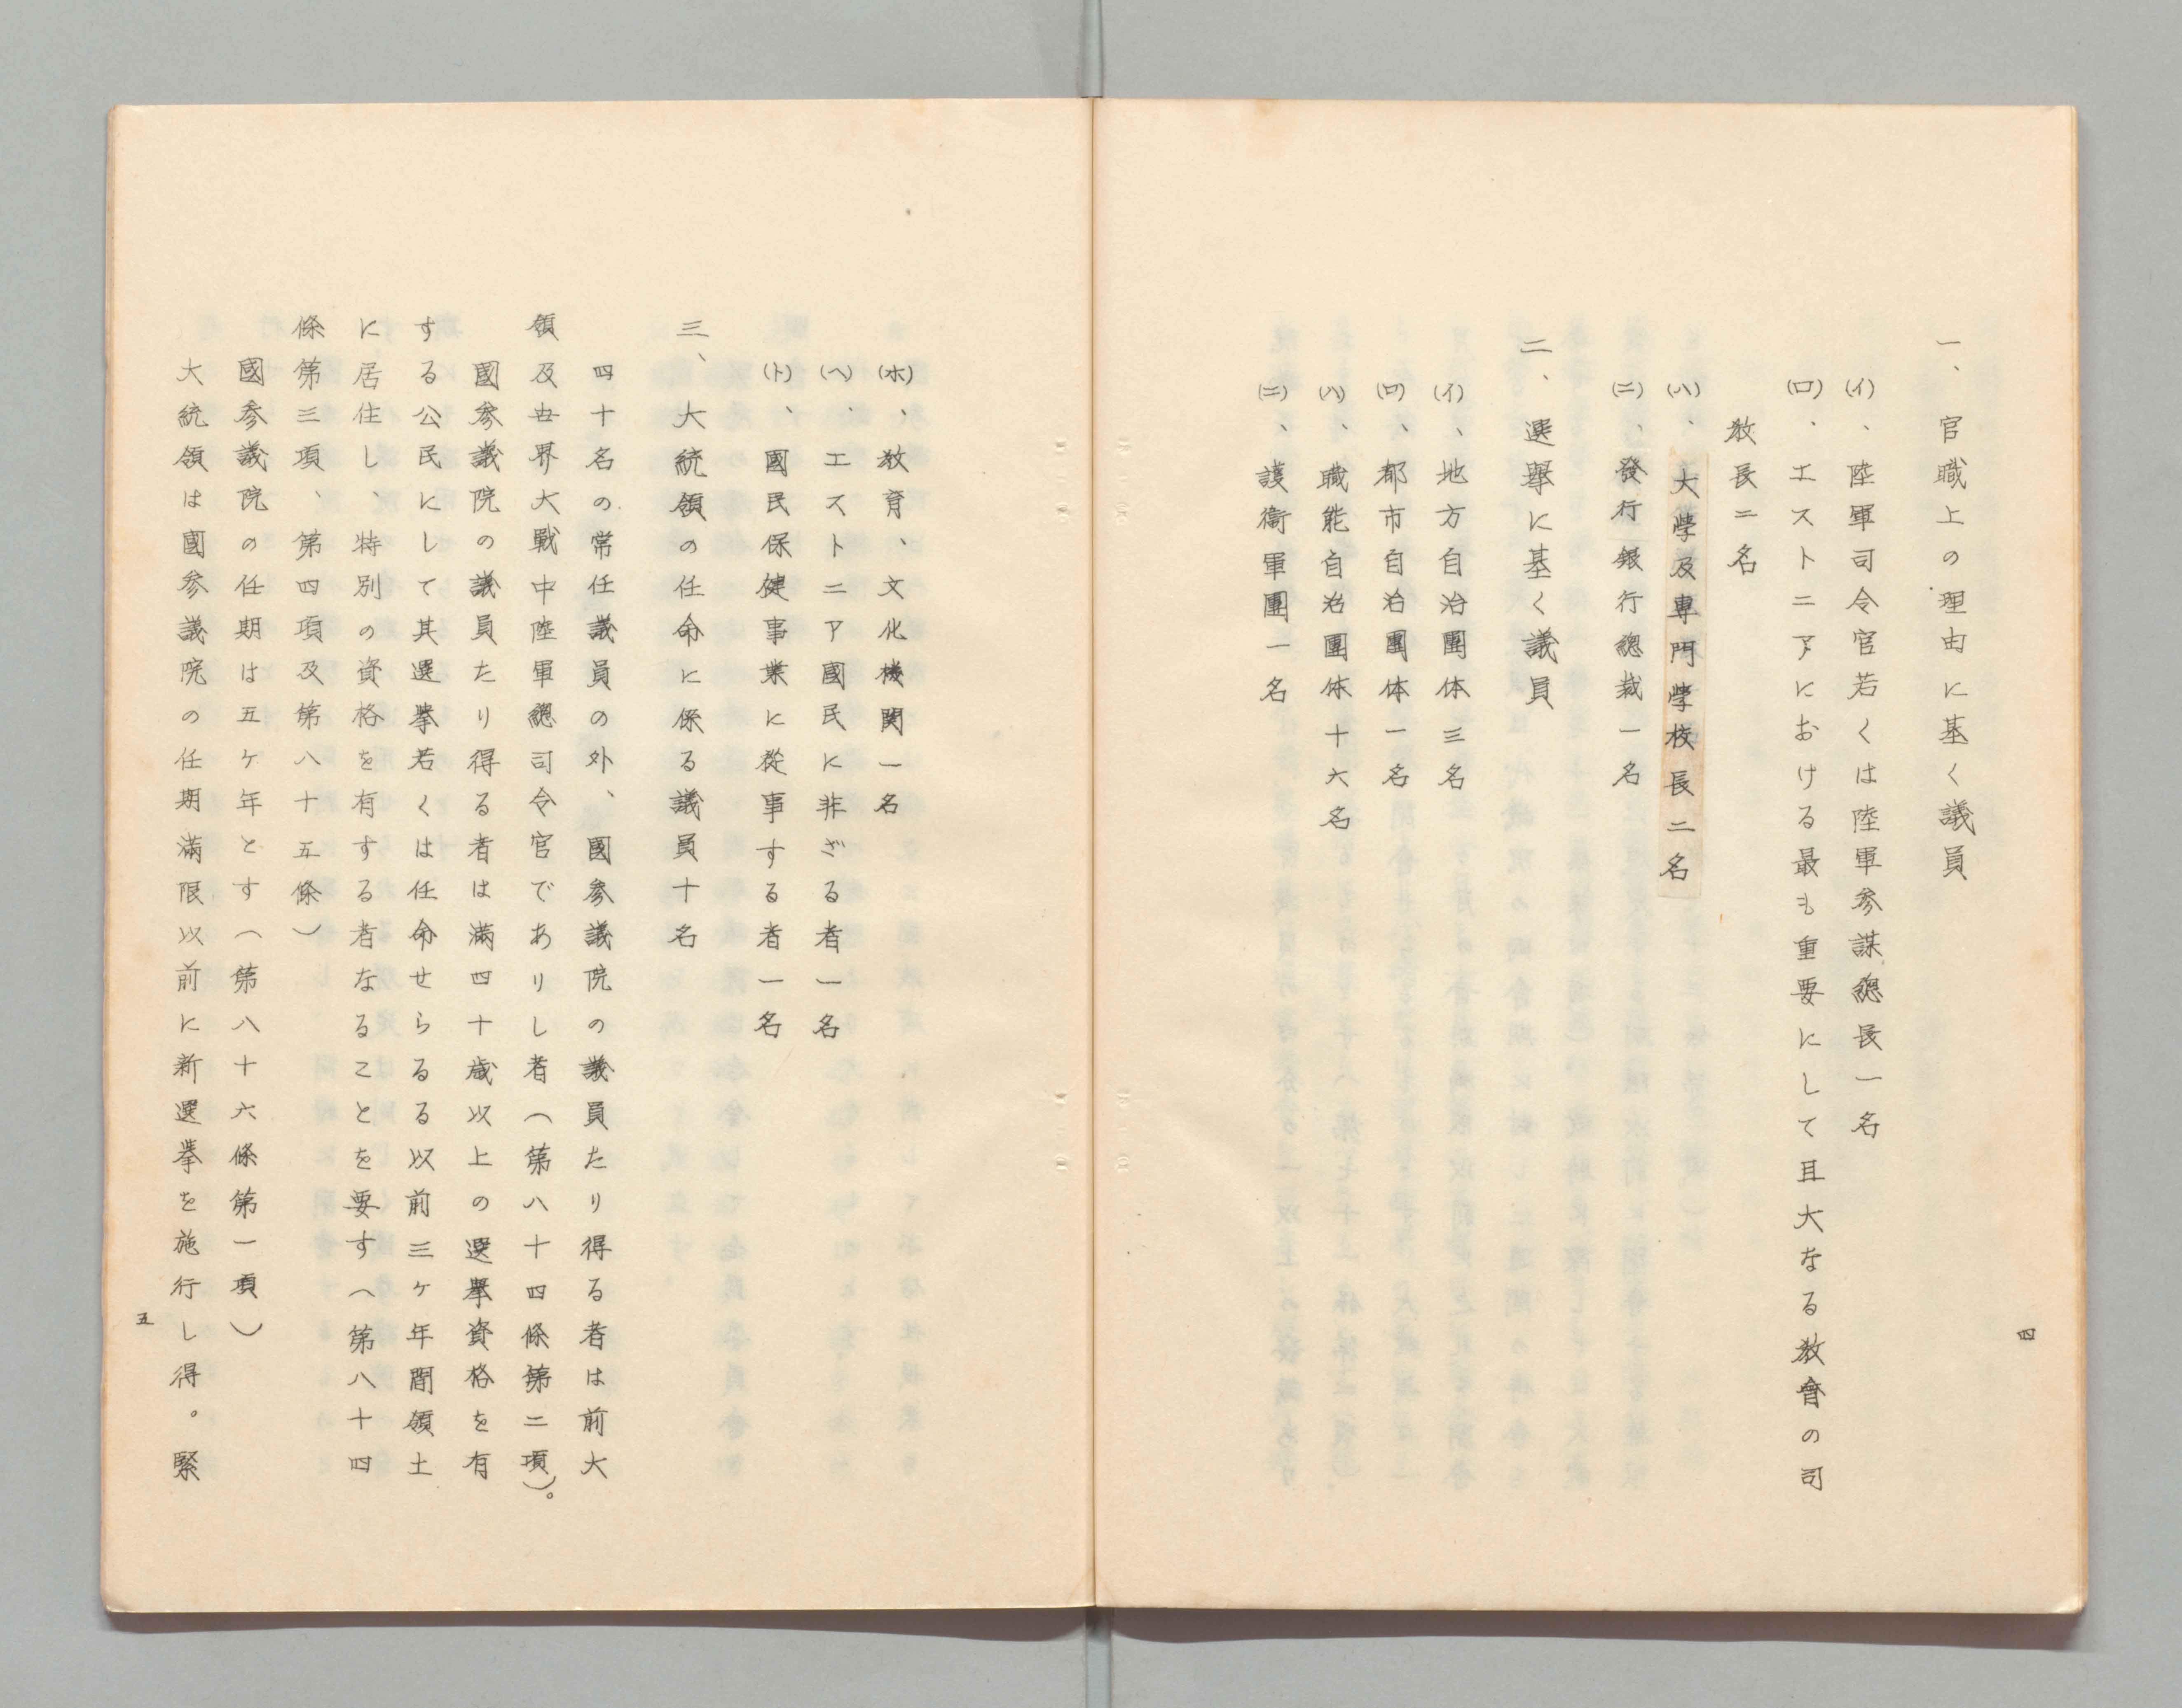 一、官職上の理由に基く議員
(イ)、陸軍司令官若くは陸軍参謀總長一名
(ロ)、エストニアにおける最も重要にして且大なる教會の司
教長二名
(ハ)、大學及専門學校長二名
(ニ)、發行銀行總裁一名
二、選擧に基く議員
(イ)、地方自治團体三名
(ロ)、都市自治團体一名
(ハ)、職能自治團体十六名
(ニ)、護衛軍團一名
四
(ホ)、教育、文化機関一名
(ヘ)、エストニア國民に非ざる者一名
(ト)、國民保健事業に從事する者一名
三、大統領の任命に係る議員十名
四十名の常任議員の外、國参議院の議員たり得る者は前大
領及世界大戰中陸軍總司令官でありし者(第八十四條第二項)。
國参議院の議員たり得る者は滿四十歳以上の選擧資格を有
する公民にして其選挙若くは任命せらるる以前三ヶ年間領土
に居住し、特別の資格を有する者なることを要す(第八十四
條第三項、第四項及第八十五條)
國参議院の任期は五ヶ年とす(第八十六條第一項)
大統領は國参議院の任期滿限以前に新選挙を施行し得。緊
五